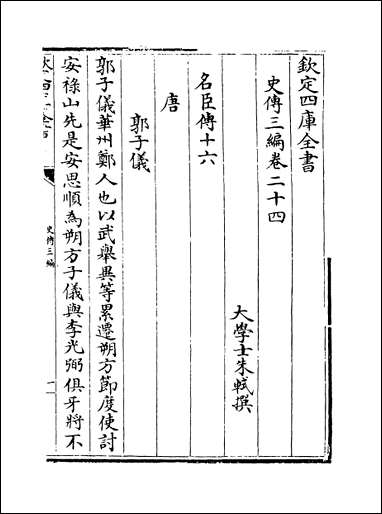 欽定四庫全書
史傳三編卷二十四
大學士朱軾撰
名臣傳十六
唐
郭子儀
郭子儀華州鄭人也以武舉異等累遷朔方節度使討
安祿山先是安思順為朔方子儀與李光弼俱牙將不
史傳三編
一